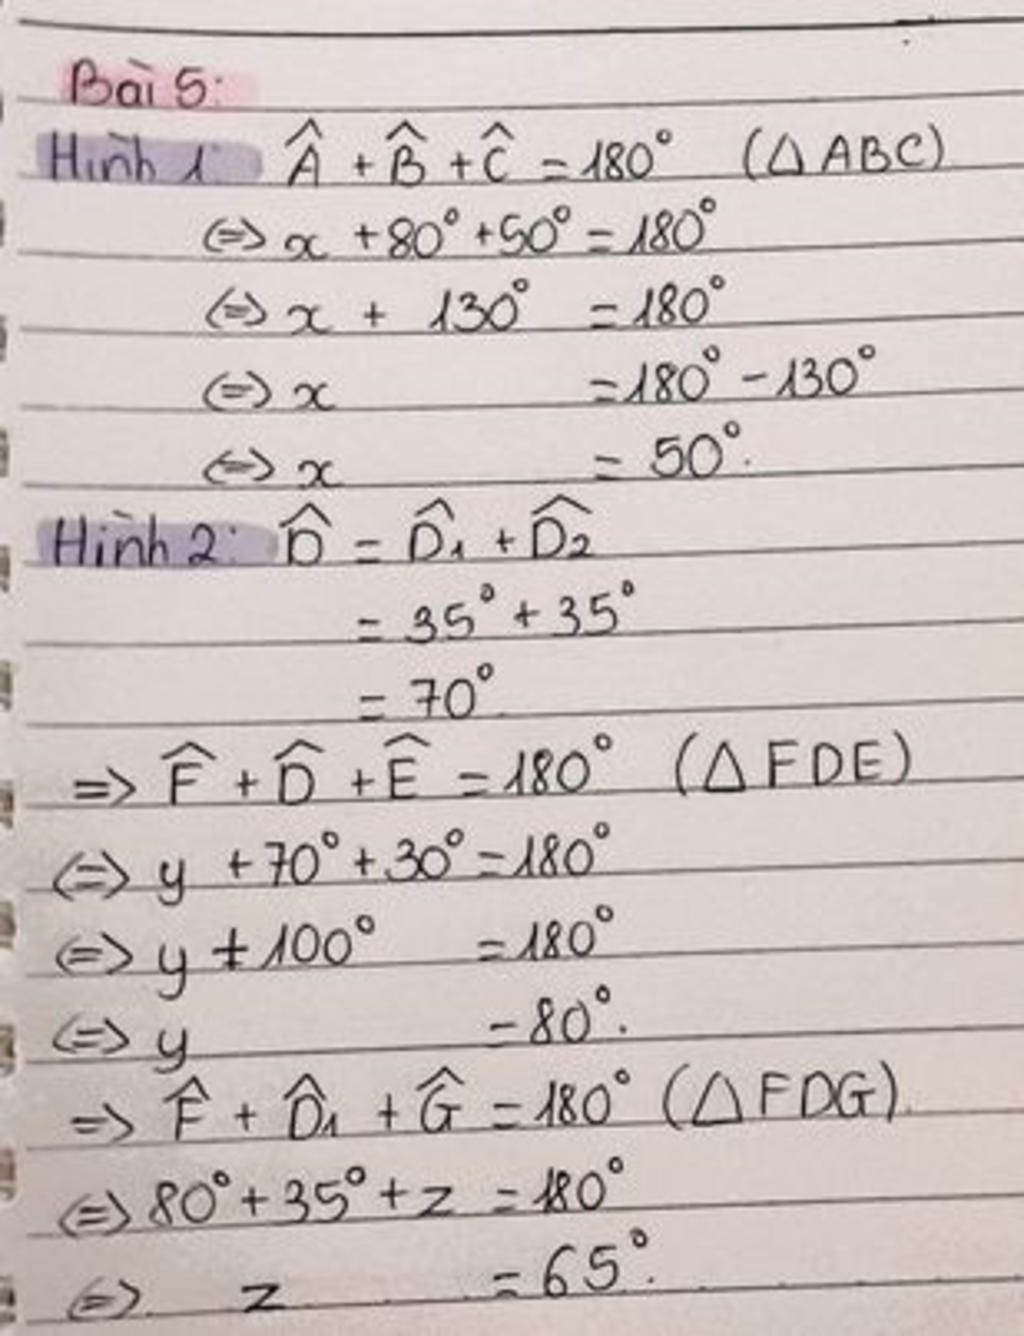 Bài 5:
Hình 1: Â + B̂ + Ĉ = 180° (△ABC)
⇔ x + 80° + 50° = 180°
⇔ x + 130° = 180°
⇔ x = 180° - 130°
⇔ x = 50°.
Hình 2: D̂ = D̂₁ + D̂₂
= 35° + 35°
= 70°
⇒ F̂ + D̂ + Ê = 180° (△FDE)
⇔ y + 70° + 30° = 180°
⇔ y + 100° = 180°
⇔ y = 80°.
⇒ F̂ + D̂₁ + Ĝ = 180° (△FDG).
⇔ 80° + 35° + z = 180°
⇔ z = 65°.